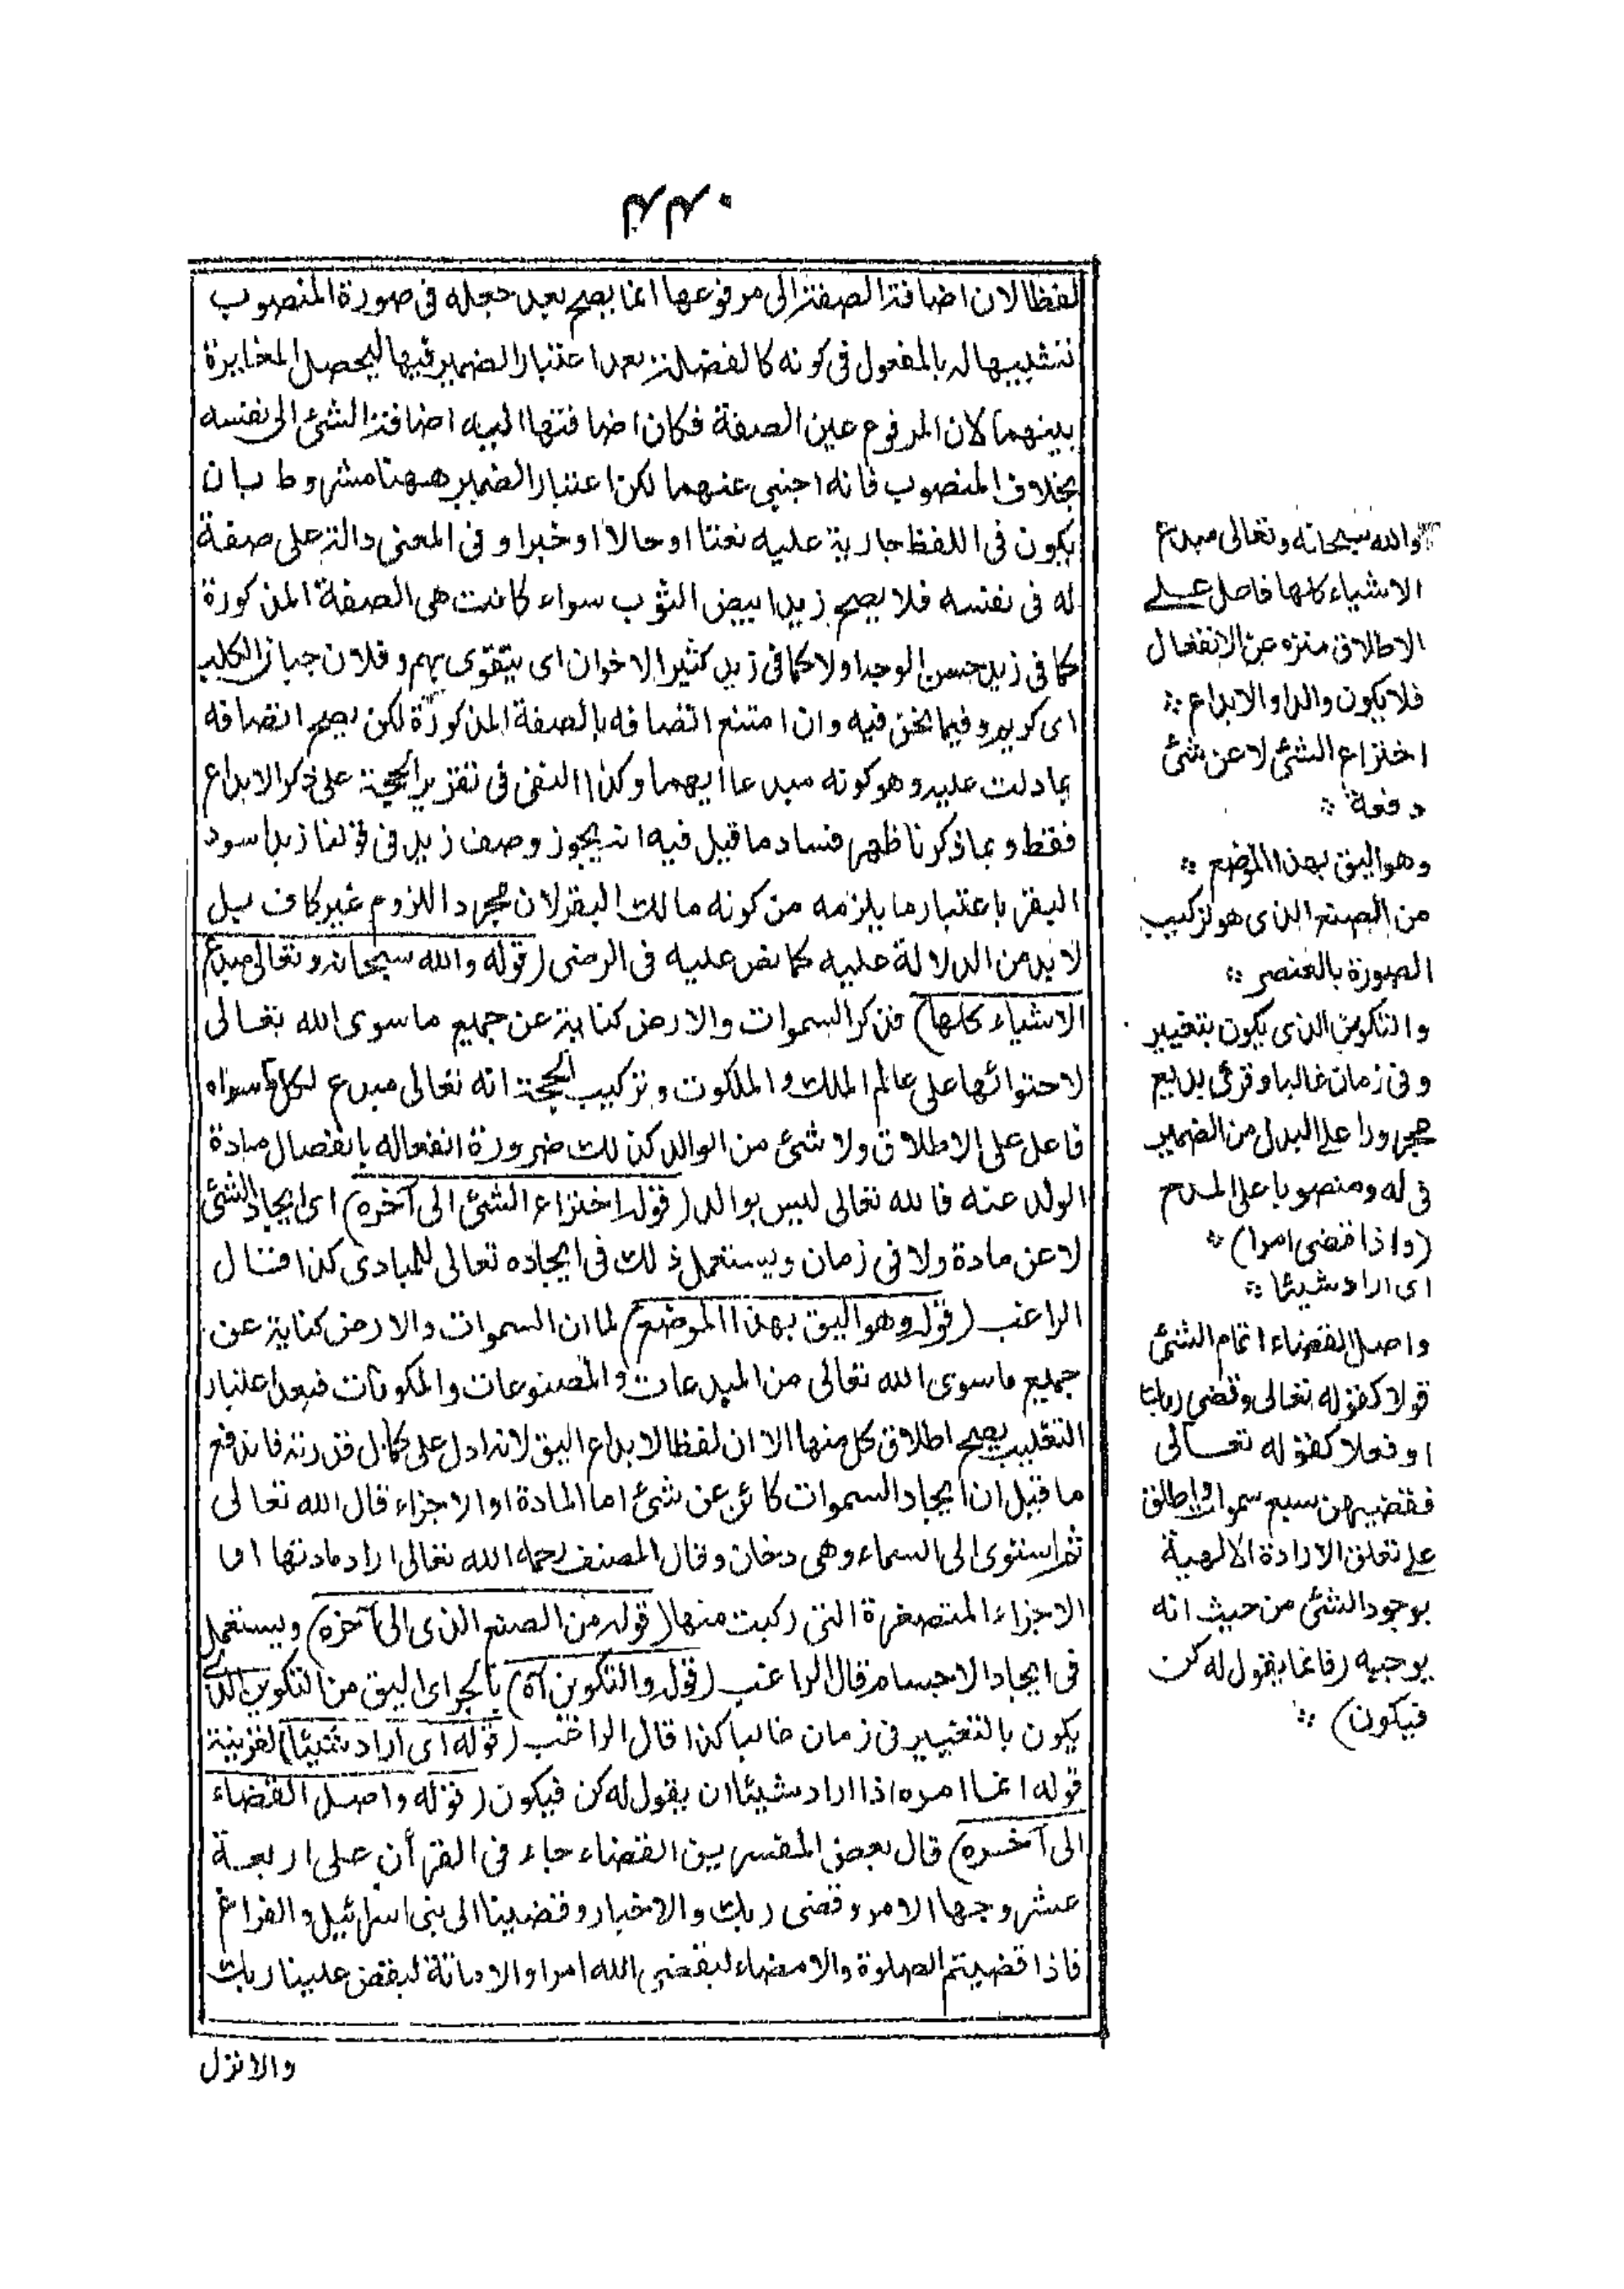 ۴۴۰
لفظا لان اضافة الصفة الى مرفوعها انما يصح بعد جعله فى صورة المنصوب
تشبيها له بالمفعول فى كونه كالفضلة بعد اعتبار الضمير فيها ليحصل المغايرة
بينهما لان المرفوع عين الصفة فكان اضافتها اليه اضافة الشئ الى نفسه
بخلاف المنصوب فانه اجنبى عنهما لكن اعتبار الضمير ههنا مشروط بان
يكون فى اللفظ جارية عليه نعتا او حالا او خبرا و فى المعنى دالة على صفة
له فى نفسه فلا يصح زيد ابيض الثوب سواء كانت هى الصفة المذكورة
كما فى زيد حسن الوجه او لا كما فى زيد كثير الاخوان اى يتقوى بهم و فلان جبان الكلب
اى كريم و فيما نحن فيه وان امتنع اتصافه بالصفة المذكورة لكن يصح اتصافه
بما دلت عليه و هو كونه مبدعا ايهما وكذا النفى فى تقرير الحجة على ذكر الابداع
فقط و بما ذكرنا ظهر فساد ما قيل فيه انه يجوز وصف زيد فى قولنا زيد اسود
البقر باعتبار ما يلزمه من كونه مالك البقر لان مجرد اللزوم غير كاف بل
لا بد من الدلالة عليه كما نص عليه فى الرضى (قوله والله سبحانه و تعالى مبدع
الاشياء كلها) فذكر السموات والارض كناية عن جميع ما سوى الله تعالى
لاحتوائها على عالم الملك و الملكوت و تركيب الحجة انه تعالى مبدع لكل ما سواه
فاعل على الاطلاق ولا شئ من الوالد كذلك ضرورة انفعاله بانفصال مادة
الولد عنه فالله تعالى ليس بوالد (قوله اختراع الشئ الى آخره) اى ايجاد الشئ
لا عن مادة ولا فى زمان ويستعمل ذلك فى ايجاده تعالى للمبادى كذا قال
الراغب (قوله وهو اليق بهذا الموضع) لما ان السموات والارض كناية عن
جميع ما سوى الله تعالى من المبدعات و المصنوعات والمكونات فبعد اعتبار
التغليب يصح اطلاق كل منها الا ان لفظ الابداع اليق لانه ادل على كمال قدرته فاندفع
ما قيل ان ايجاد السموات كائن عن شئ اما المادة او الاجزاء قال الله تعالى
ثم استوى الى السماء وهى دخان وقال المصنف رحمه الله تعالى اراد مادتها او
الاجزاء المتصغرة التى ركبت منها (قوله من الصنع الذى الى آخره) ويستعمل
فى ايجاد الاجسام قال الراغب (قوله والتكوين آه) بالجر اى اليق من التكوين الذى
يكون بالتغيير فى زمان غالبا كذا قال الراغب (قوله اى اراد شيئا) لقرينة
قوله انما امره اذا اراد شيئا ان يقول له كن فيكون (قوله واصل القضاء
الى آخره) قال بعض المفسرين القضاء جاء فى القرآن على اربعة
عشر وجها الامر وقضى ربك والاخبار وقضينا الى بنى اسرائيل و الفراغ
فاذا قضيتم الصلوة والامضاء ليقضى الله امرا والاماتة ليقض علينا ربك
والانزل
والله سبحانه وتعالى مبدع
الاشياء كلها فاعل على
الاطلاق منزه عن الانفعال
فلا يكون والدا والابداع
اختراع الشئ لا عن شئ
دفعة
وهو اليق بهذا الموضع
من الصنع الذى هو تركيب
الصورة بالعنصر
والتكوين الذى يكون بتغيير
و فى زمان غالبا وقرئ بديع
مجرورا على البدل من الضمير
فى له ومنصوبا على المدح
(واذا قضى امرا)
اى اراد شيئا
واصل القضاء اتمام الشئ
قولا كقوله تعالى وقضى ربك
او فعلا كقوله تعالى
فقضيهن سبع سموات واطلق
على تعلق الارادة الالهية
بوجود الشئ من حيث انه
يوجبه (فانما يقول له كن
فيكون)